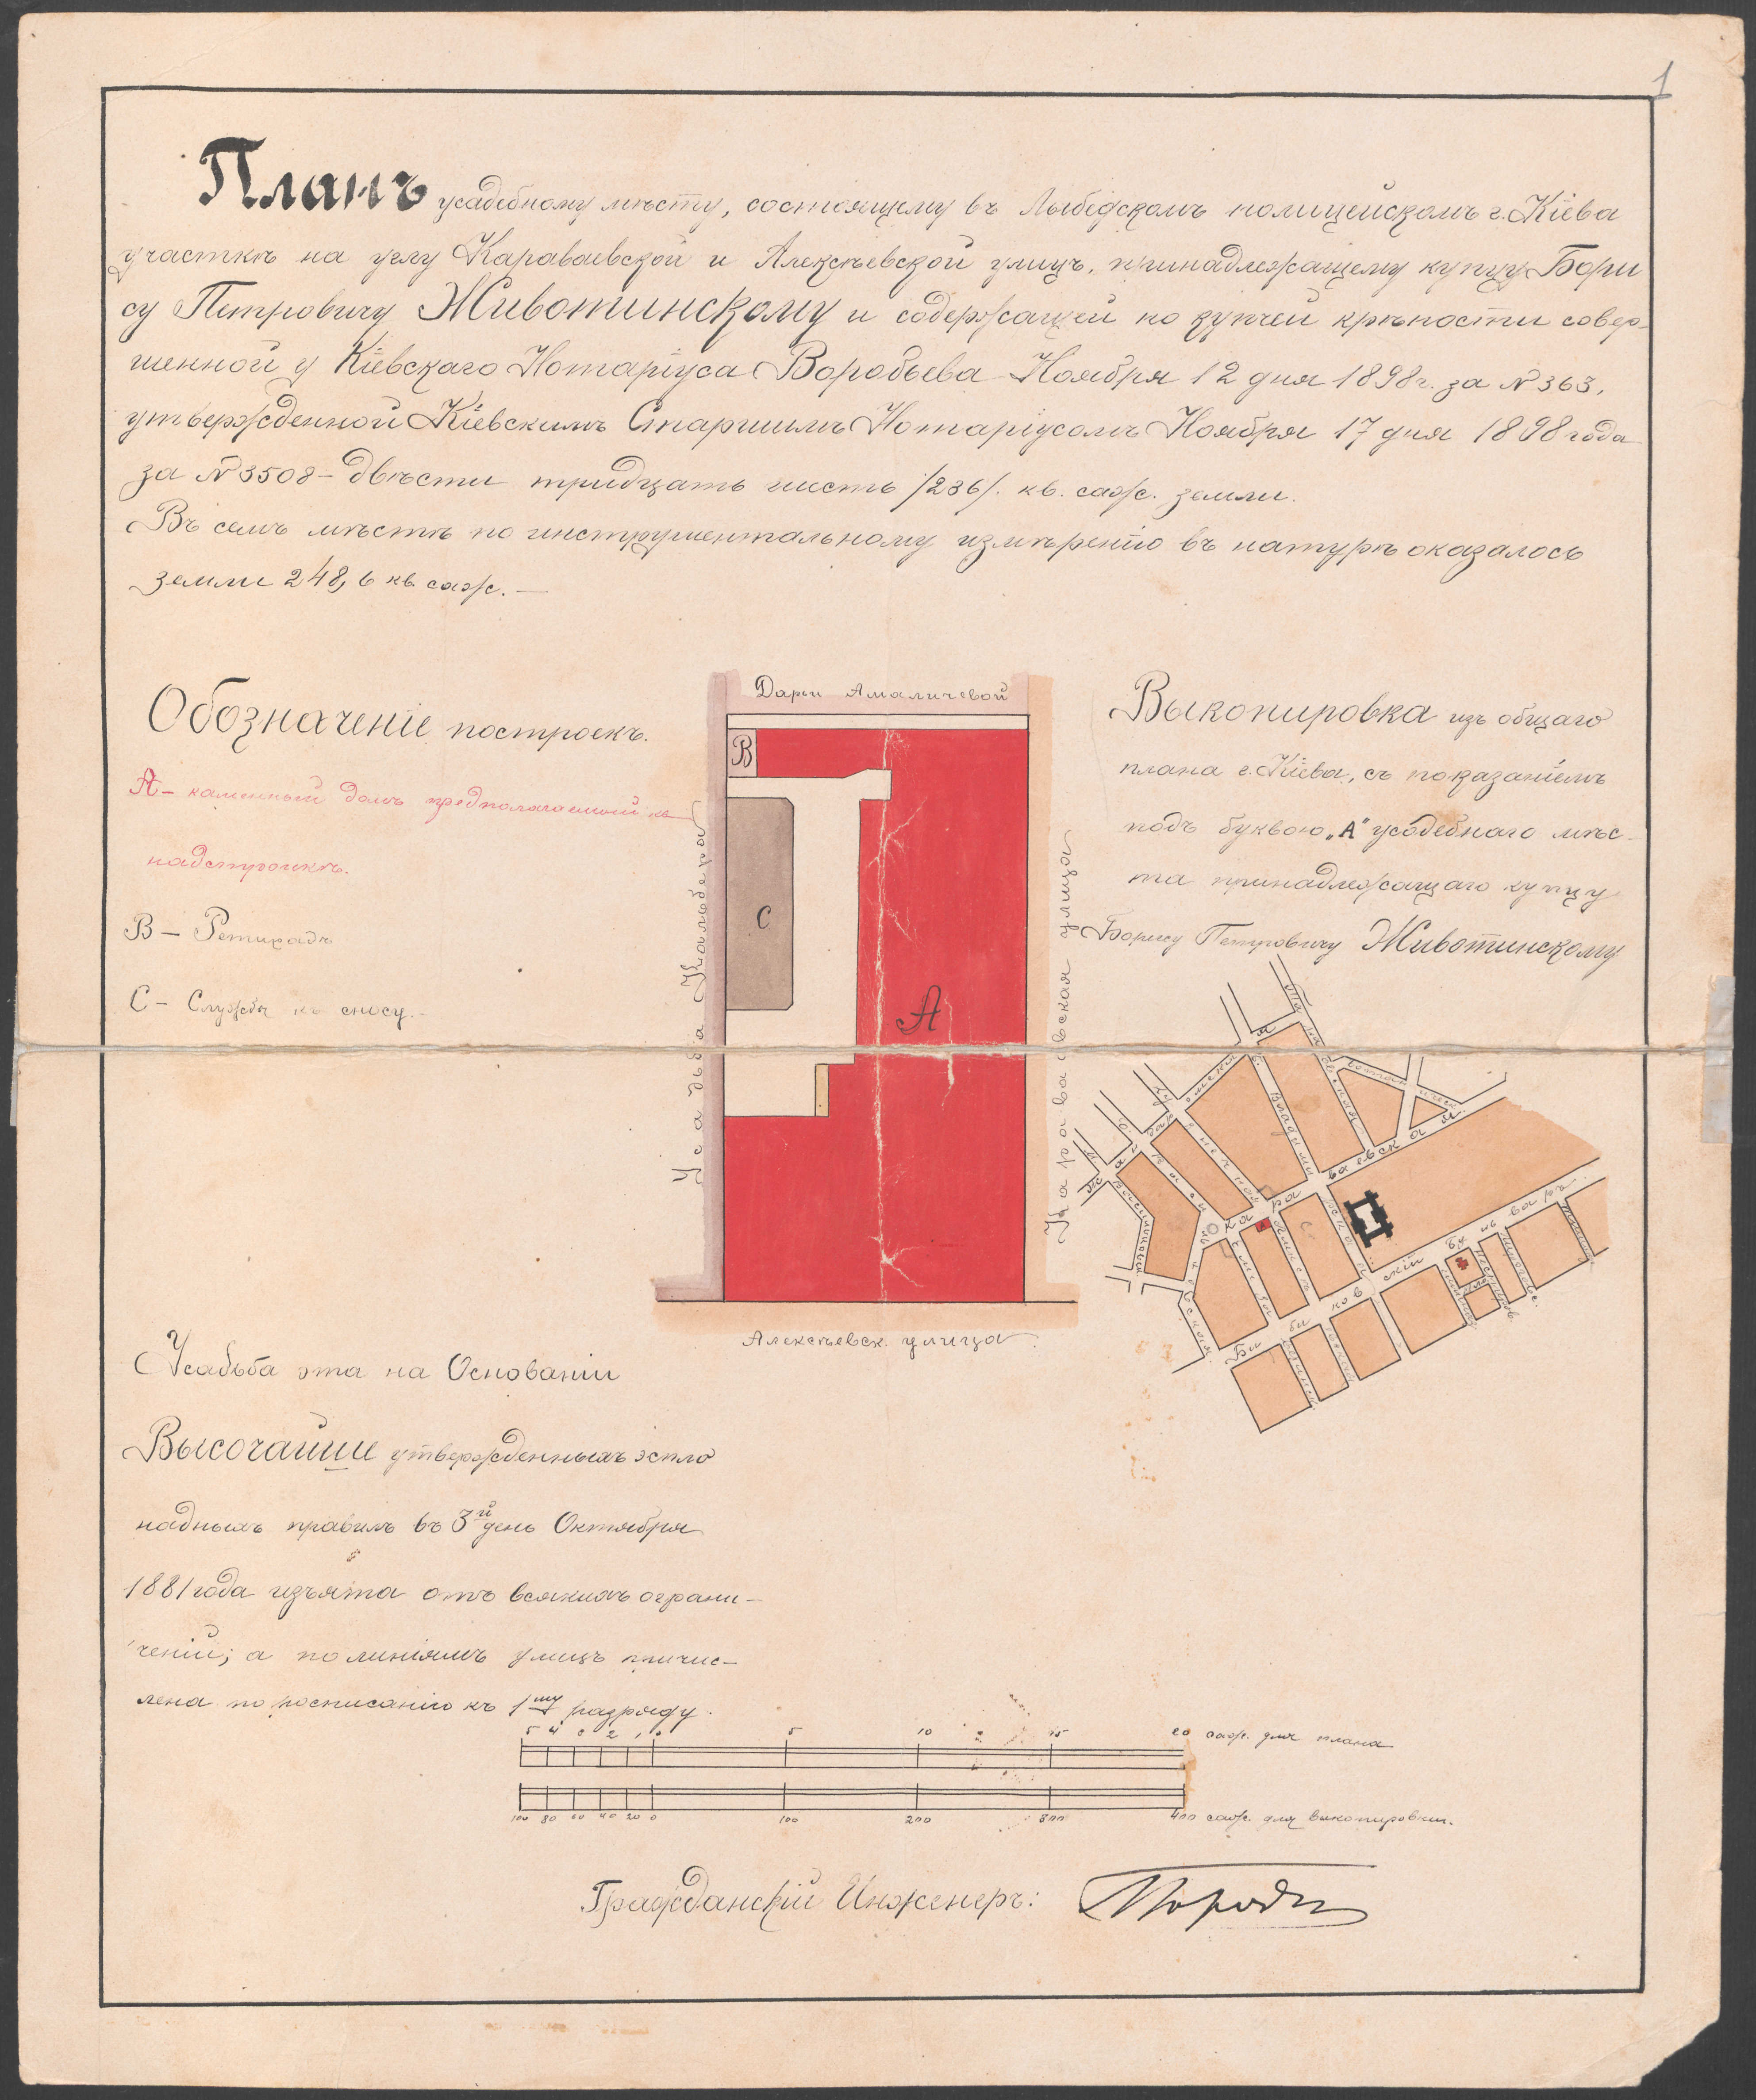 1
Планъ усадебному мѣсту, состоящему въ Лыбедскомъ полицейскомъ г. Кіева
участкѣ на углу Караваевской и Алексѣевской улицъ, принадлежащему купцу Бори
су Петровичу Животинскому и содержащей по купчей крѣпости совер-
шенной у Кіевскаго Нотаріуса Воробьева Ноября 12 дня 1898 г. за № 363,
утвержденной Кіевскимъ Старшимъ Нотаріусомъ Ноября 17 дня 1898 года
за № 3508 - двѣсти тридцать шесть /236/. кв. саж. земли.
Въ семъ мѣстѣ по инструментальному измѣренію въ натурѣ оказалось
земли 248,6 кв. саж. —
Обозначеніе построекъ.
А - каменный домъ предполагаемый къ
надстройкѣ.
В - Ретирадъ
С - Службы къ сносу. -
Дарьи Амаличевой
В
С
А
Усадьба Кальбера
Караваевская улица
Алексѣевск. улица
Выкопировка изъ общаго
плана г. Кіева, съ показаніемъ
подъ буквою „А" усадебнаго мѣс-
та принадлежащаго купцу
Борису Петровичу Животинскому
Влади мі рс ка я
Ка ра ваевска я
Би би ков скій бу ль варъ
Усадьба эта на Основаніи
Высочайше утвержденныхъ эспла
надныхъ правилъ въ 3й день Октября
1881 года изъята отъ всякихъ ограни-
ченій; а по линіямъ улицъ причис-
лена по росписанію къ 1му разряду.
5 4 3 2 1 0 5 10 15 20 саж. для плана
100 80 60 40 20 0 100 200 300 400 саж. для выкопировки.
Гражданскій Инженеръ: